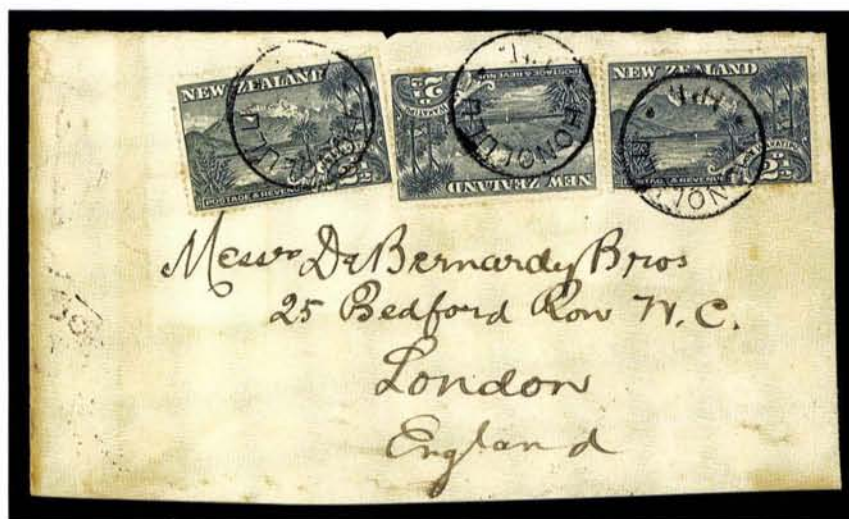 NEW ZEALAND
POSTAGE & REVENUE
2½
HONOLULU
NEW ZEALAND
POSTAGE & REVENUE
2½
WAKATIPU
HONOLULU
NEW ZEALAND
POSTAGE & REVENUE
2½
Messrs De Bernardy Bros
25 Bedford Row W.C.
London
England